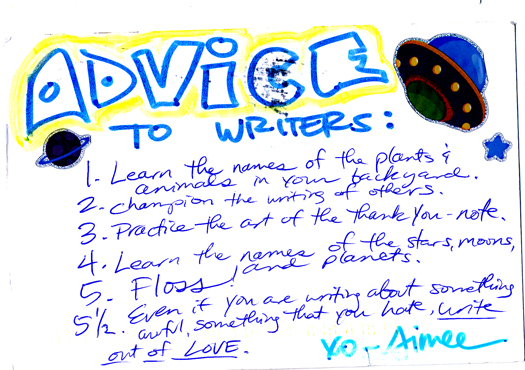 ADVICE
TO WRITERS:
1. Learn the names of the plants &
animals in your backyard.
2. Champion the writing of others.
3. Practice the art of the thank you-note.
4. Learn the names of the stars, moons,
and planets.
5. Floss!
5 1/2. Even if you are writing about something
awful, something that you hate, write
out of LOVE.
xo-Aimee